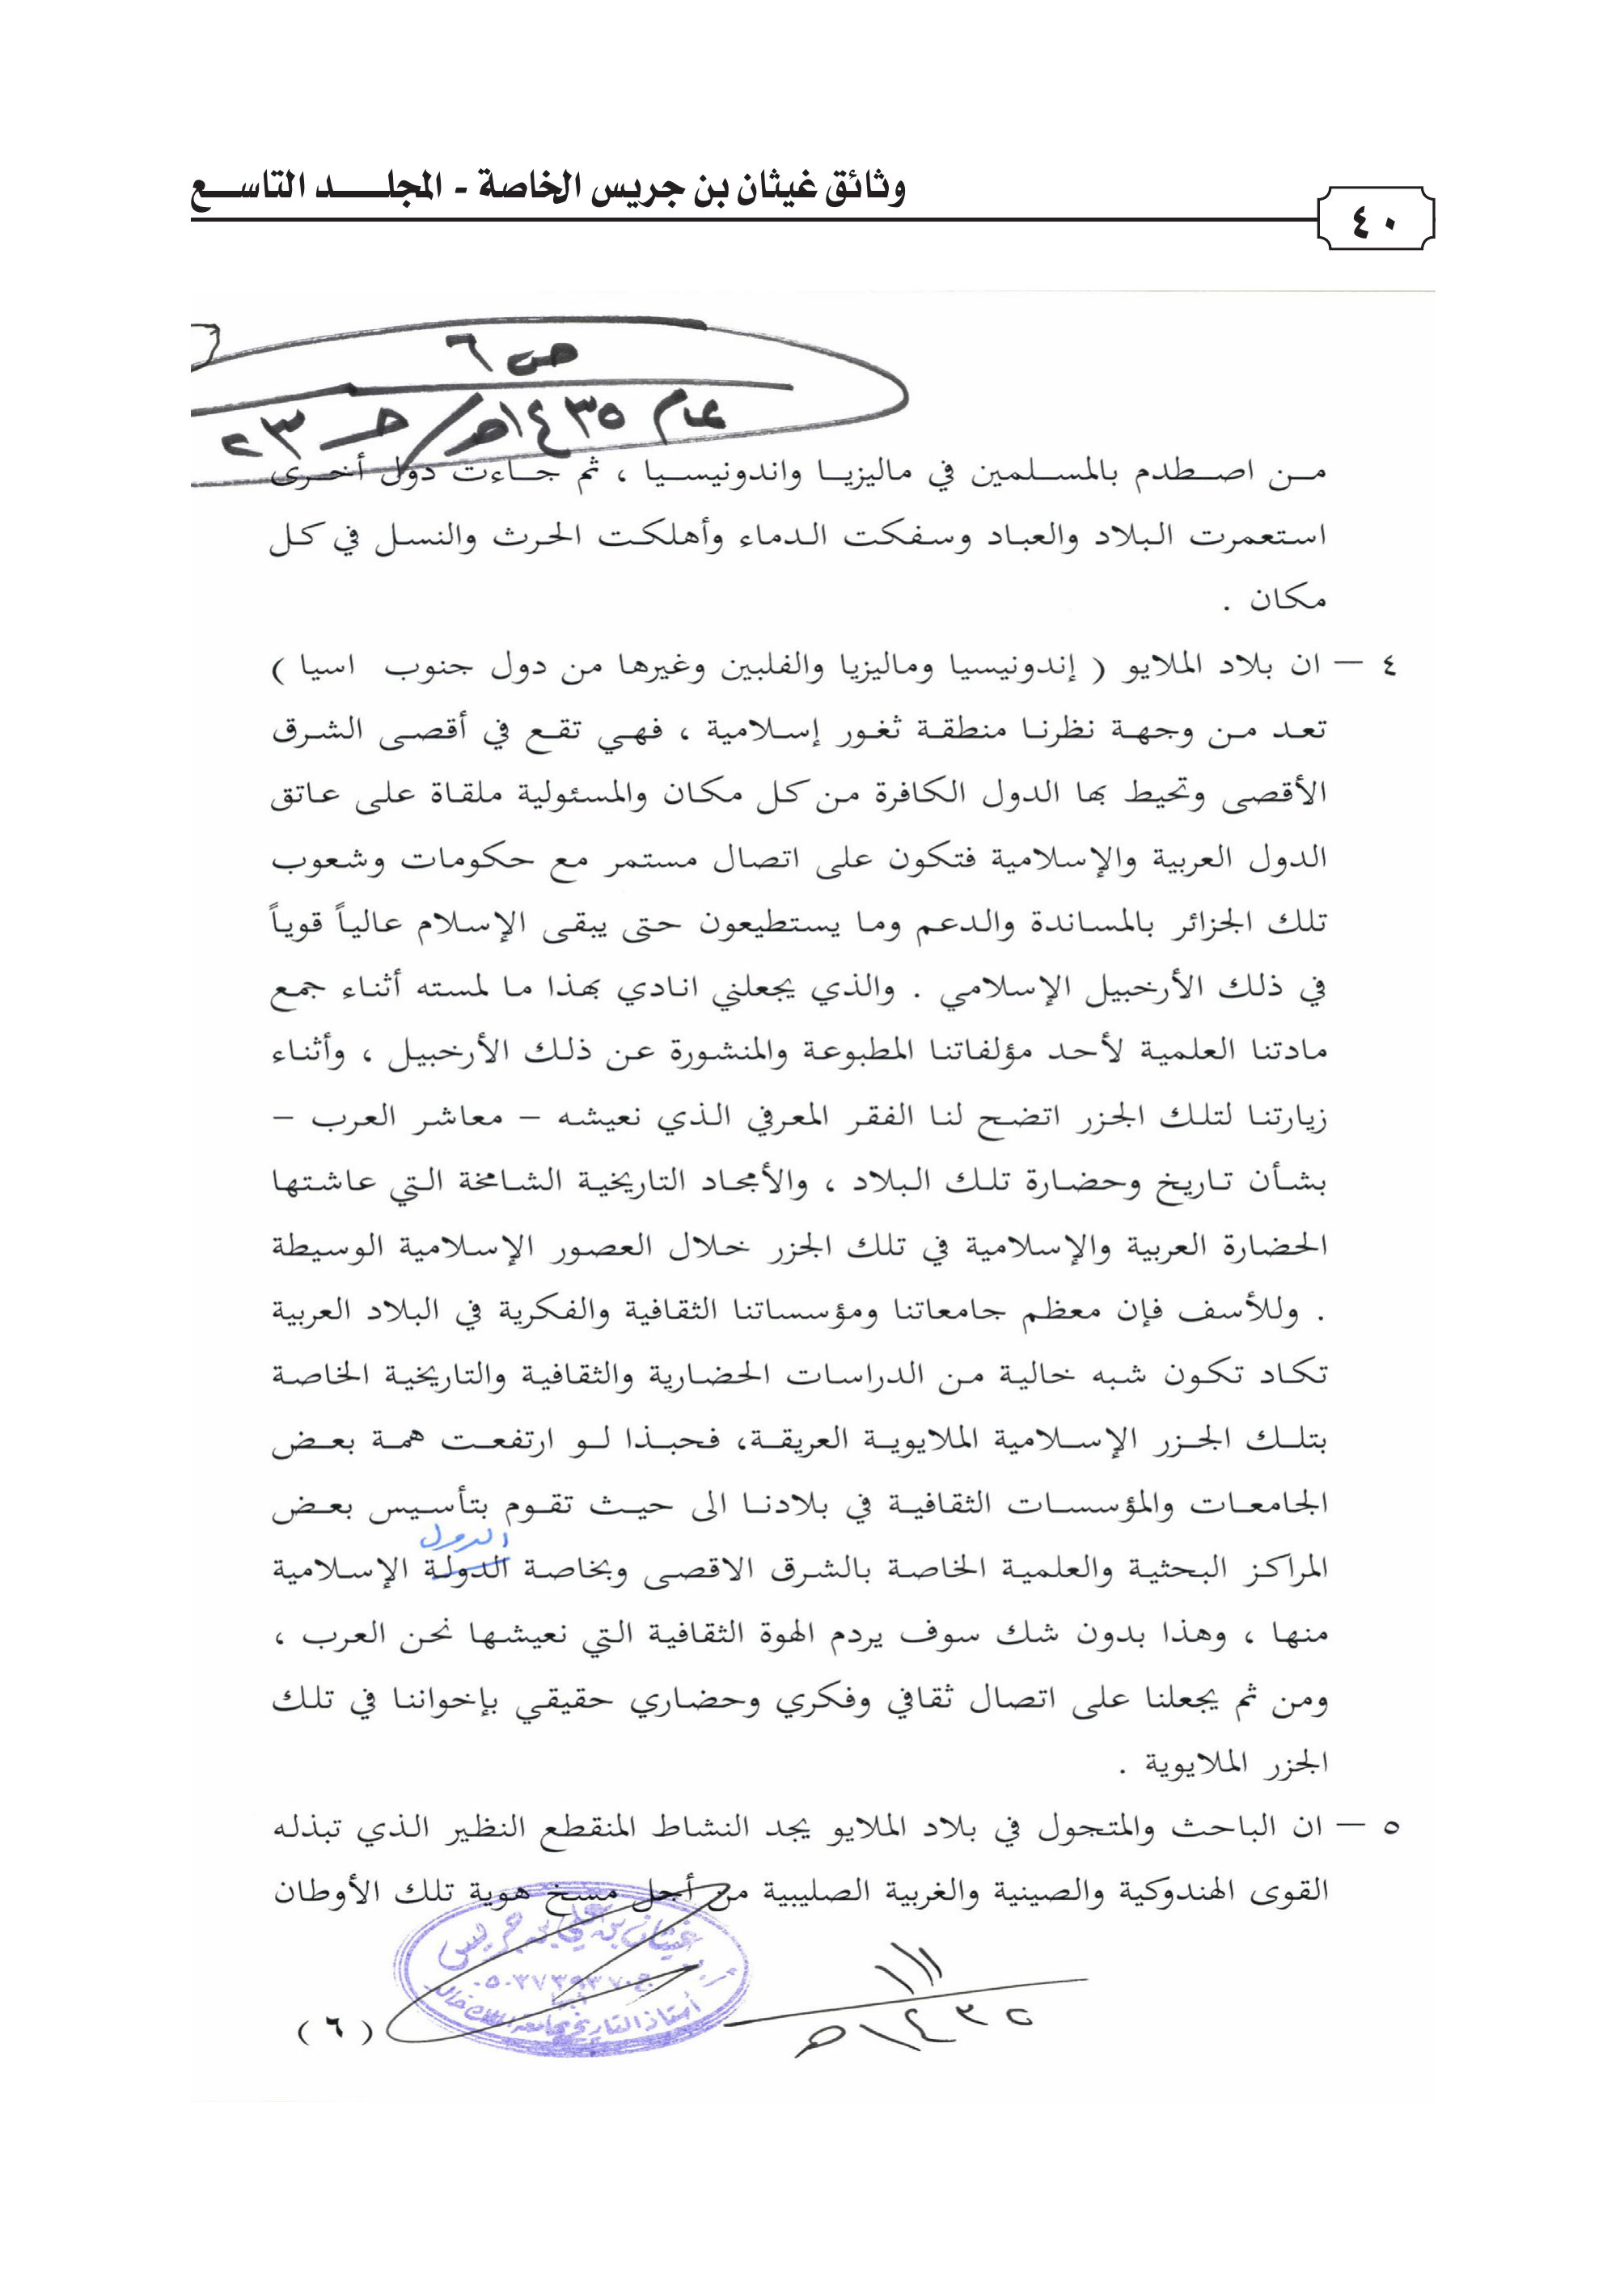 وثائق غيثان بن جريس الخاصة - المجلـــــد التاســـع
٤٠
ص ٦
عام ١٤٣٥هـ / حـ ٢٣
مـن اصـطدم بالمسـلمين في ماليزيـا واندونيسـيا ، ثم جـاءت دول أخـرى
استعمرت البلاد والعباد وسفكت الدماء وأهلكت الحرث والنسل في كل
مكان .
٤ – ان بلاد الملايو ( إندونيسيا وماليزيا والفلبين وغيرها من دول جنوب اسيا )
تعد من وجهة نظرنا منطقة ثغور إسلامية ، فهي تقع في أقصى الشرق
الأقصى وتحيط بها الدول الكافرة من كل مكان والمسئولية ملقاة على عاتق
الدول العربية والإسلامية فتكون على اتصال مستمر مع حكومات وشعوب
تلك الجزائر بالمساندة والدعم وما يستطيعون حتى يبقى الإسلام عالياً قوياً
في ذلك الأرخبيل الإسلامي . والذي يجعلني انادي بهذا ما لمسته أثناء جمع
مادتنا العلمية لأحد مؤلفاتنا المطبوعة والمنشورة عن ذلك الأرخبيل ، وأثناء
زيارتنا لتلك الجزر اتضح لنا الفقر المعرفي الذي نعيشه – معاشر العرب –
بشأن تاريخ وحضارة تلك البلاد ، والأمجاد التاريخية الشامخة التي عاشتها
الحضارة العربية والإسلامية في تلك الجزر خلال العصور الإسلامية الوسيطة
. وللأسف فإن معظم جامعاتنا ومؤسساتنا الثقافية والفكرية في البلاد العربية
تكاد تكون شبه خالية من الدراسات الحضارية والثقافية والتاريخية الخاصة
بتلك الجزر الإسلامية الملايوية العريقة، فحبذا لو ارتفعت همة بعض
الجامعات والمؤسسات الثقافية في بلادنا الى حيث تقوم بتأسيس بعض
الدول
المراكز البحثية والعلمية الخاصة بالشرق الاقصى وبخاصة الدولة الإسلامية
منها ، وهذا بدون شك سوف يردم الهوة الثقافية التي نعيشها نحن العرب ،
ومن ثم يجعلنا على اتصال ثقافي وفكري وحضاري حقيقي بإخواننا في تلك
الجزر الملايوية .
٥ – ان الباحث والمتجول في بلاد الملايو يجد النشاط المنقطع النظير الذي تبذله
القوى الهندوكية والصينية والغربية الصليبية من أجل مسخ هوية تلك الأوطان
غيثان بن علي بن جريس
أبها
أستاذ التاريخ بجامعة الملك خالد
١/١
١٤٣٥هـ
( ٦ )